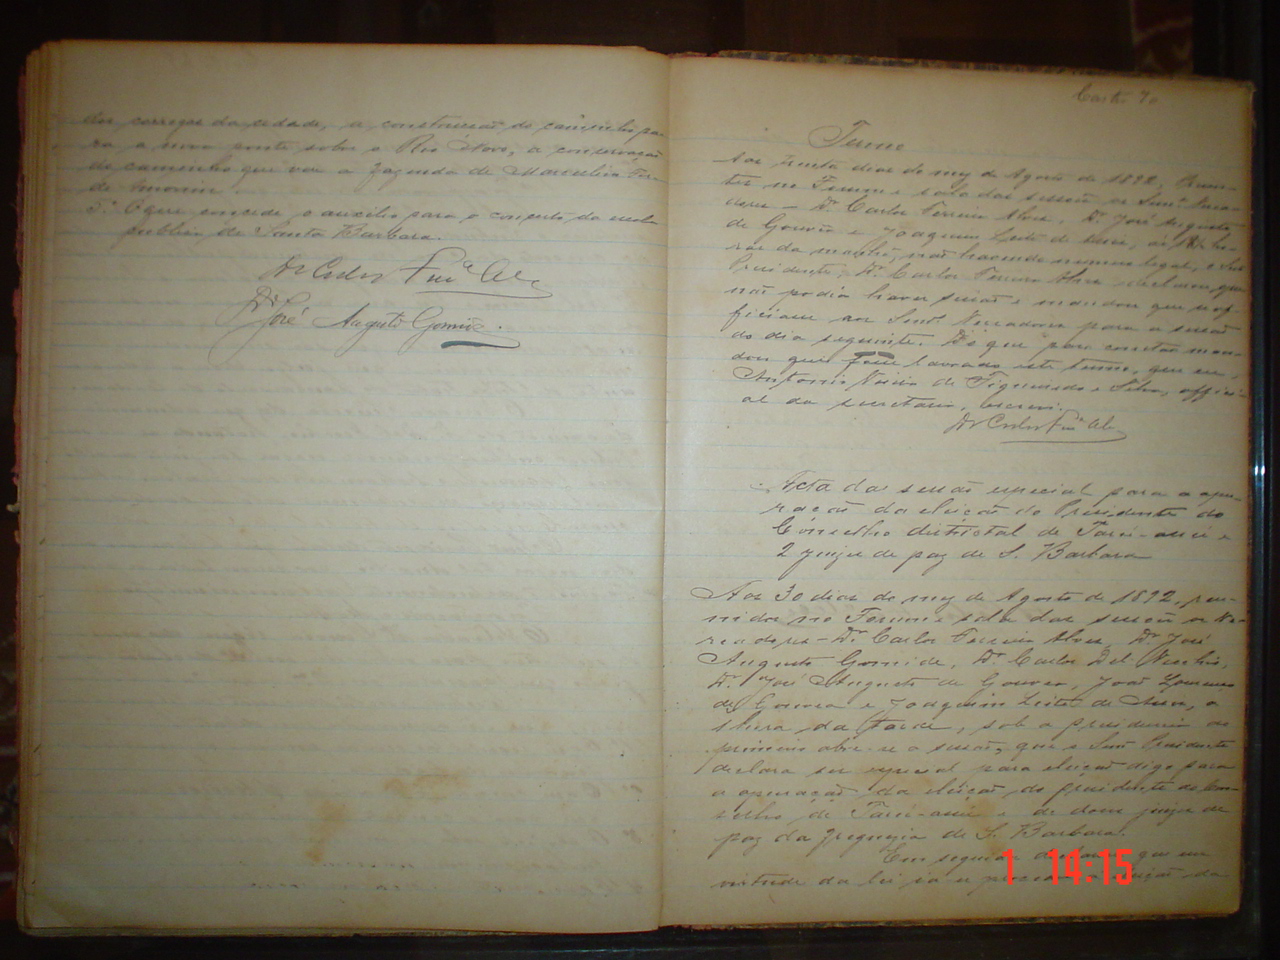 dos corregos da cidade, a construcção do caminho pa-
ra a nova ponte sobre o Rio Novo, a conservação
do caminho que vae a fazenda de Marcellino
de Amorim
5.º O que concede o auxilio para o concerto da escola
publica de Santa Barbara.
Dr Carlos Frrª Als
Dr José Augusto Gomide.
Castro 70
Termo
Aos trinta dias do mez de Agosto de 1892, Presen-
tes no Forum e sala das sessões os Snrs. Verea-
dores - Dr. Carlos Ferreira Alves, Dr. José Augusto
de Gouvêa e Joaquim Leite de
da manhã, não havendo numero legal, o Snr.
Presidente, Dr. Carlos Ferreira Alves declarou que
não podia haver sessão e mandou que se of-
ficiasse aos Snrs. Vereadores para a sessão
do dia seguinte. Do que para constar man-
dou que fosse lavrado este termo, que eu,
Antonio de Figueiredo e Silva, offici-
al da secretaria, escrevi.
Dr Carlos Frrª Als
Acta da sessão especial para a apu-
ração da eleição do Presidente do
Conselho districtal de e
2 juizes de paz de S. Barbara
Aos 30 dias do mez de Agosto de 1892, reu-
nidos no Forum e sala das sessões os Ve-
readores - Dr. Carlos Ferreira Alves, Dr. José
Augusto Gomide, Dr. Carlos Del Vecchio,
Dr. José Augusto de Gouvea, João Lourenço
de Gouvea e Joaquim Leite de
hora da tarde, sob a presidencia do
primeiro abre-se a sessão, que o Snr. Presidente
declara ser especial para eleição digo para
a apuração da eleição do presidente do Con-
selho de e de dous juizes de
paz da freguezia de S. Barbara.
Em seguida que em
virtude da lei ia a eleição da
1 14:15